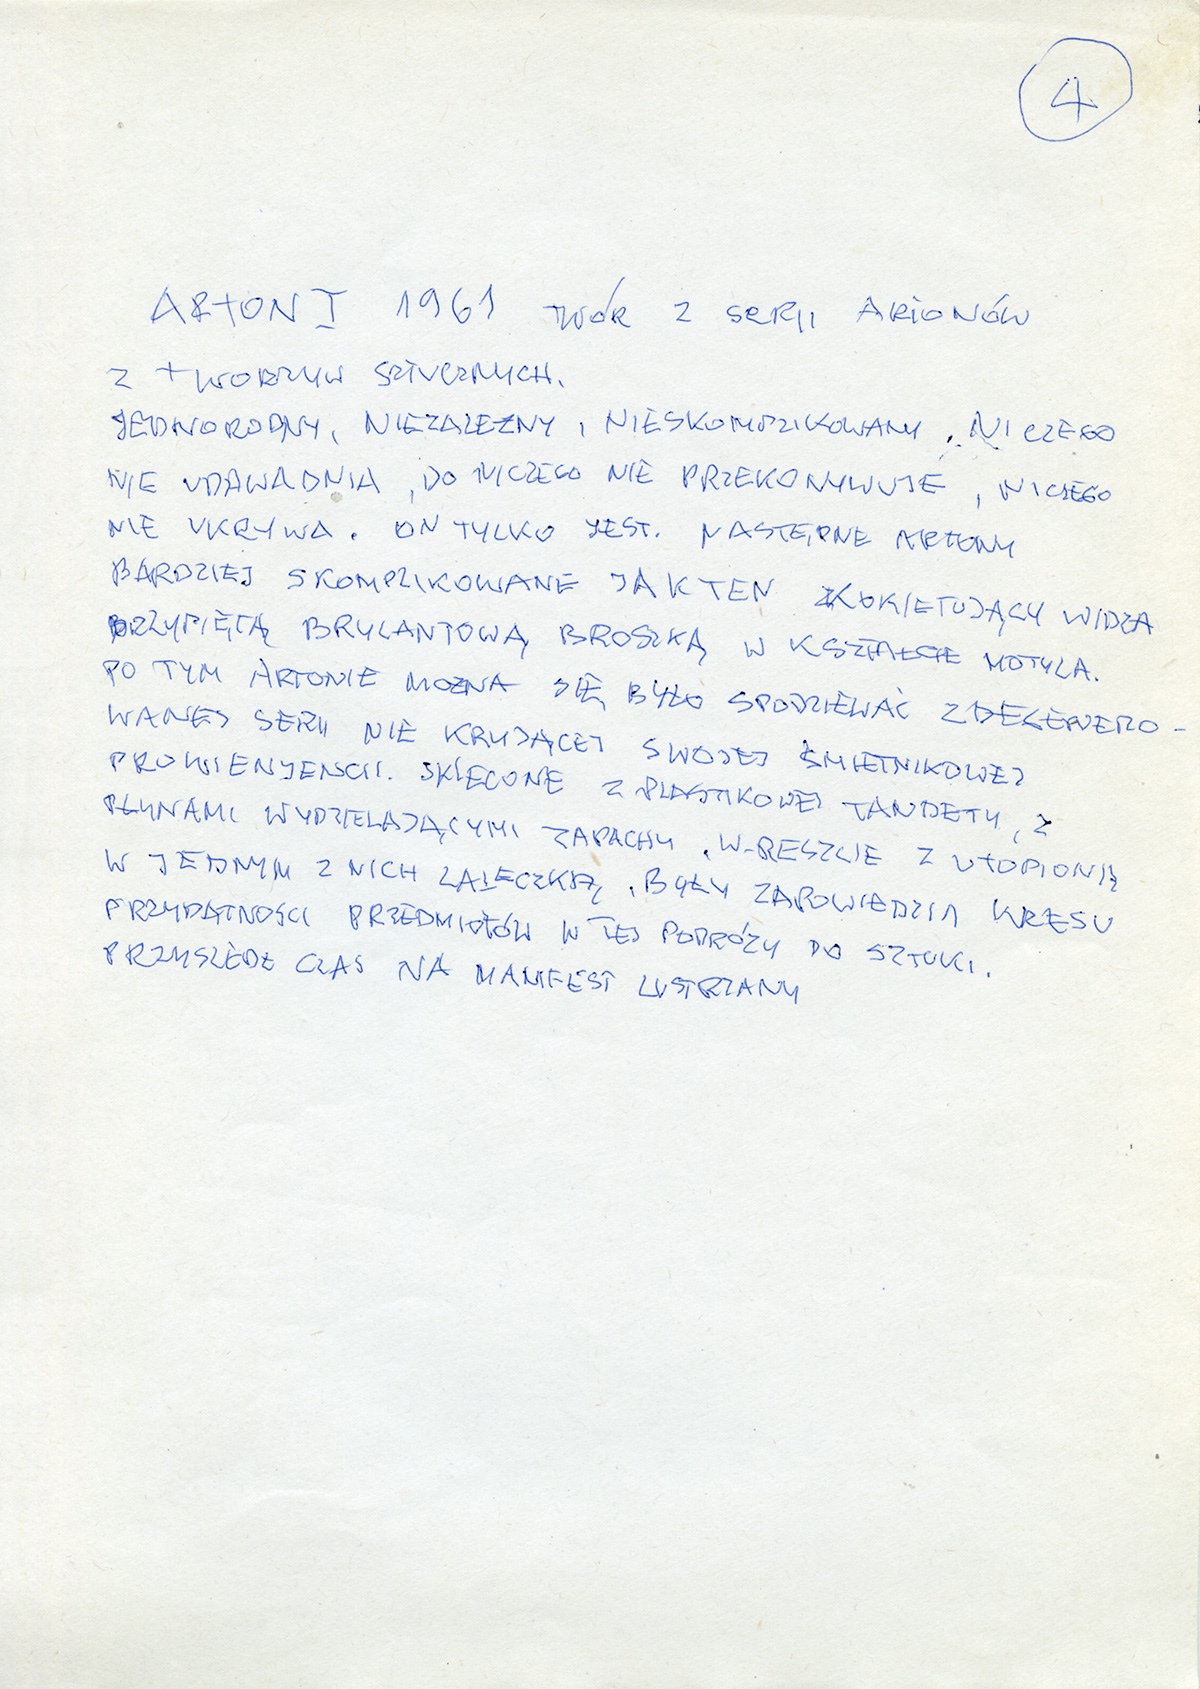 4
ARTON I 1961 TWÓR Z SERII ARTONÓW
Z TWORZYW SZTUCZNYCH.
JEDNORODNY, NIEZALEŻNY, NIESKOMPLIKOWANY. NICZEGO
NIE UDAWADNIA, DO NICZEGO NIE PRZEKONYWUJE, NICZEGO
NIE UKRYWA. ON TYLKO JEST. NASTĘPNE ARTONY
BARDZIEJ SKOMPLIKOWANE JAK TEN KOKIETUJĄCY WIDZA
PRZYPIĘTĄ BRYLANTOWĄ BROSZKĄ W KSZTAŁCIE MOTYLA.
PO TYM ARTONIE MOŻNA SIĘ BYŁO SPODZIEWAĆ ZDEGENERO-
WANEJ SERII NIE KRYJĄCEJ SWOJEJ ŚMIETNIKOWEJ
PROWIENJENSCII. SKLECONE Z PLASTIKOWEJ TANDETY, Z
PŁYNAMI WYDZIELAJĄCYMI ZAPACHY, W-RESZCIE Z UTOPIONĄ
W JEDNYM Z NICH LALECZKĄ, BYŁY ZAPOWIEDZIĄ KRESU
PRZYDATNOŚCI PRZEDMIOTÓW W TEJ PODRÓŻY DO SZTUKI.
PRZYSZEDŁ CZAS NA MANIFEST LUSTRZANY